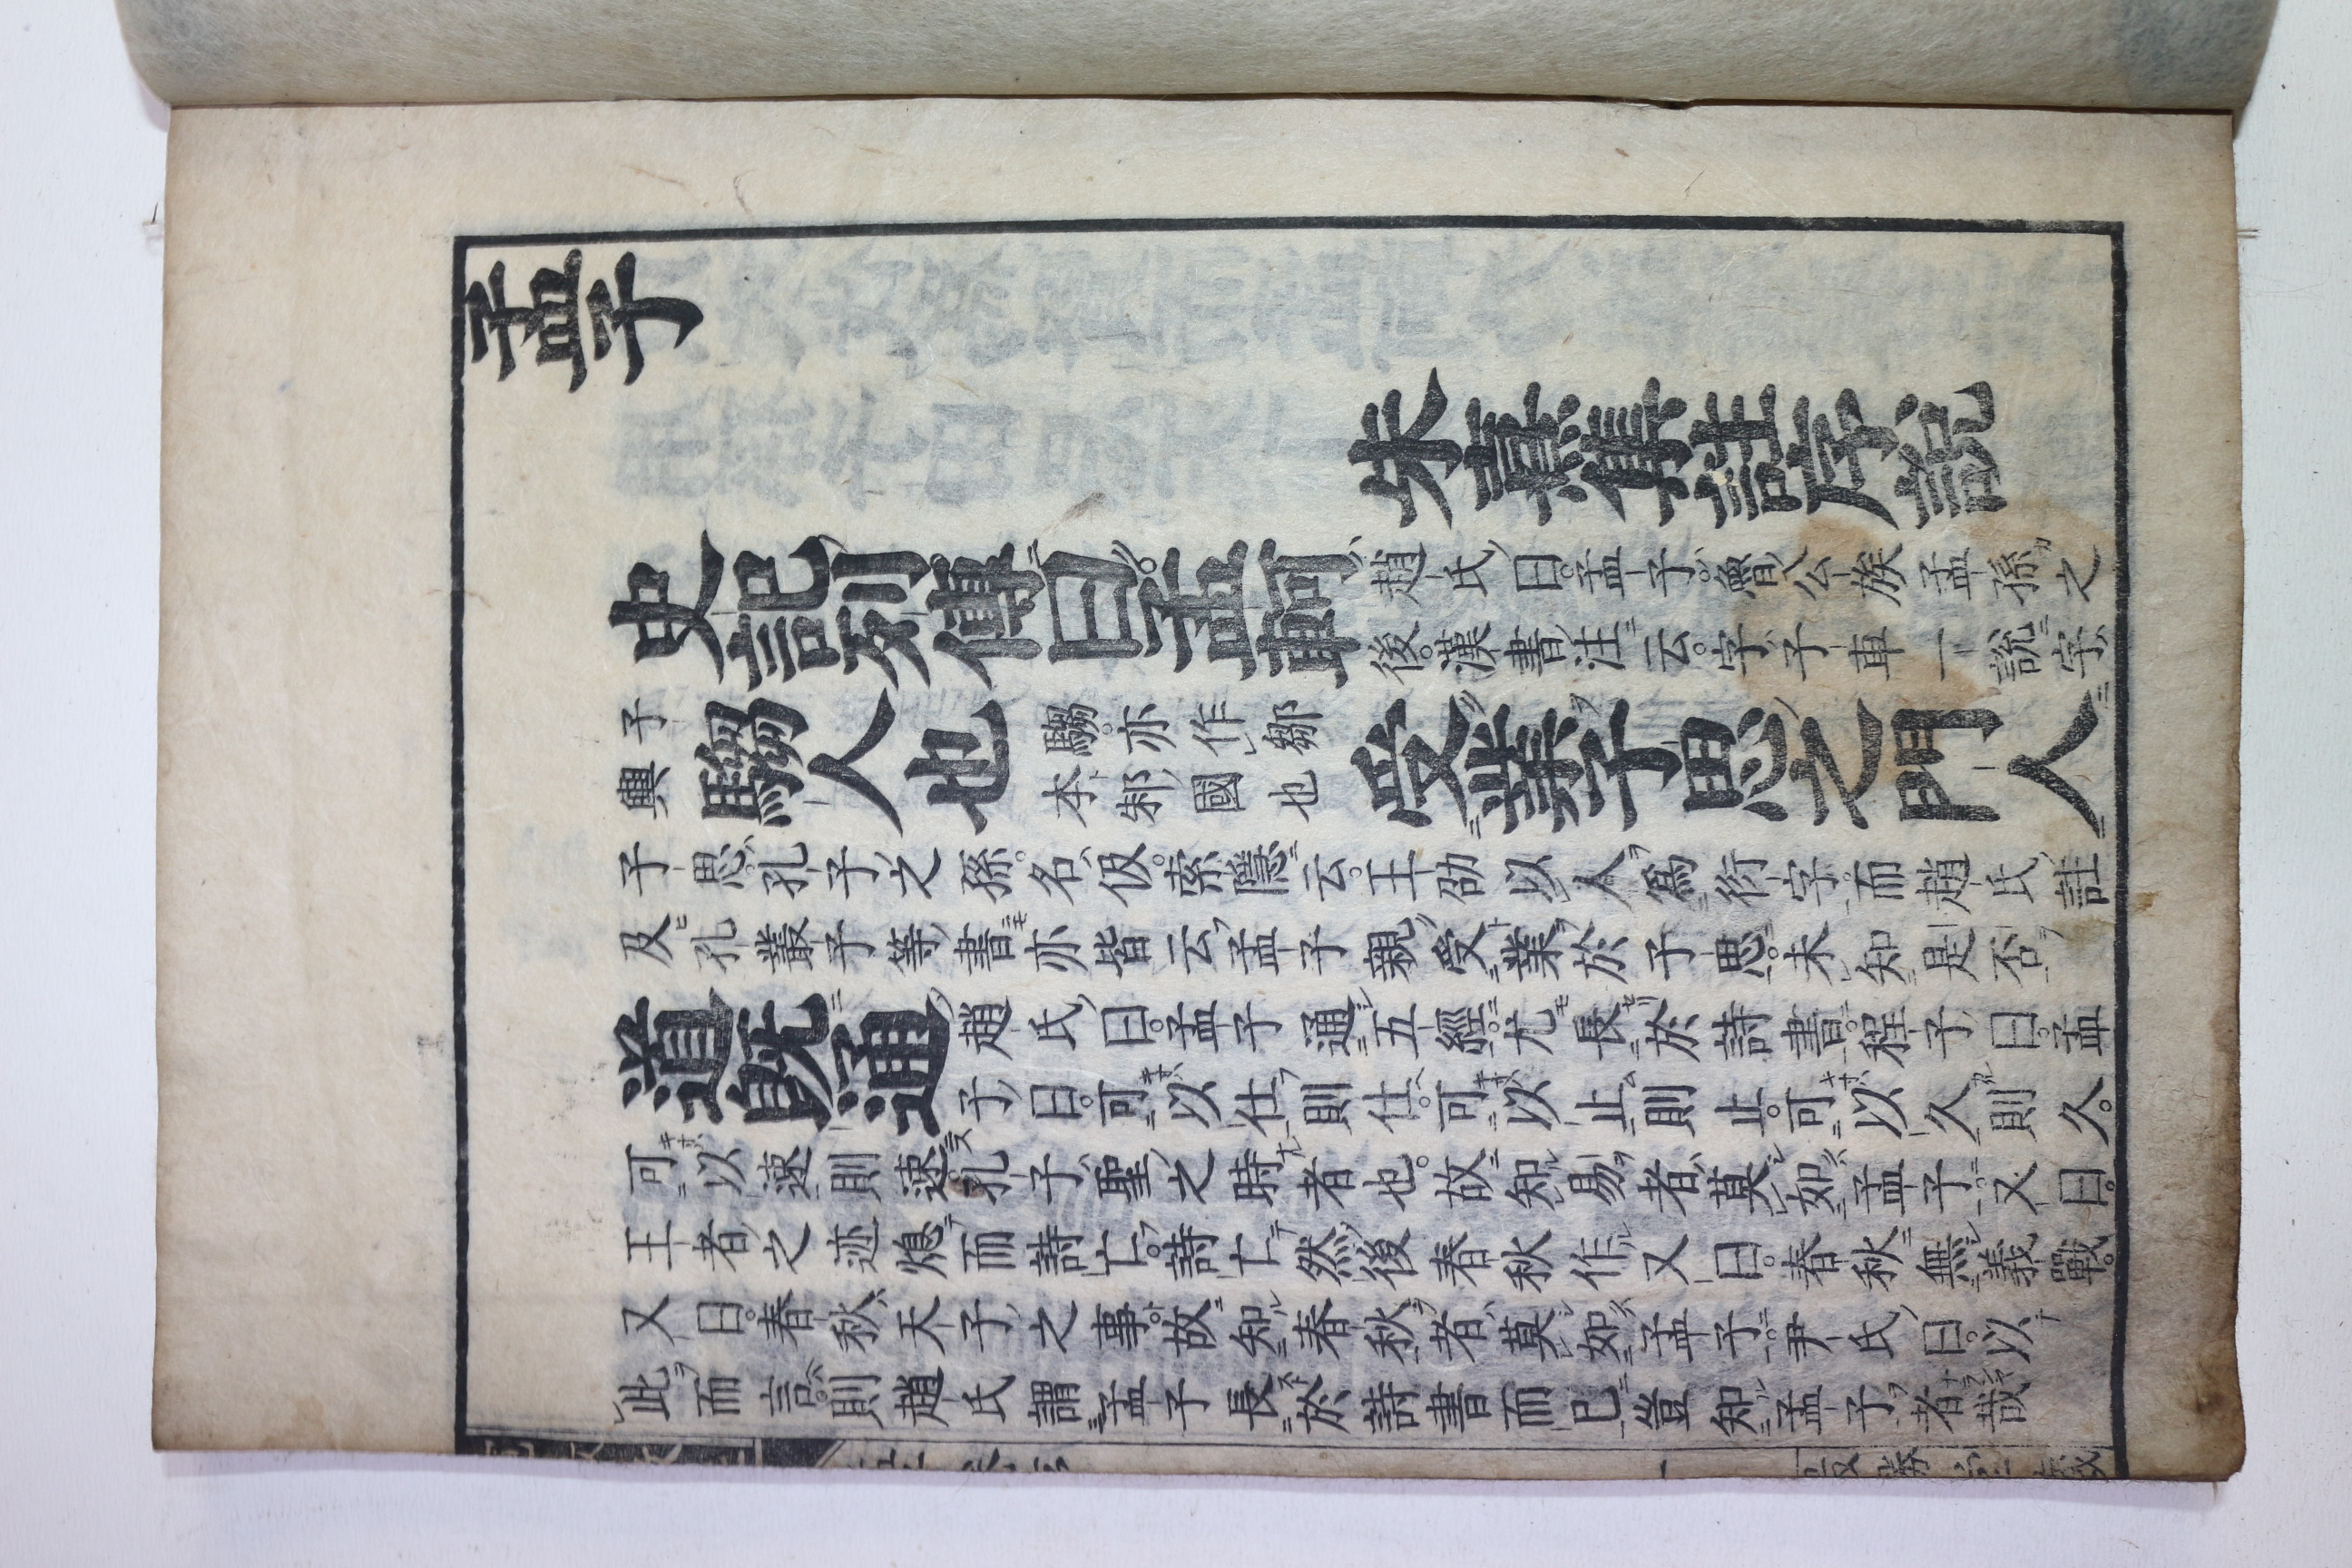 孟子
朱熹集註序說
史記列傳曰。孟軻趙氏曰。孟子。魯公族孟孫之
後。漢書注云。字子車一說字
子
興
騶人也騶。亦作鄒
本邾國也
受業子思之門人
子思。孔子之孫。名伋。索隱云。王劭以人爲衍字。而趙氏註
及孔叢子等書亦皆云孟子親受業於子思。未知是否
道既通趙氏曰。孟子通五經。尤長於詩書。程子曰。孟
子曰。可以仕則仕。可以止則止。可以久則久。
可以速則速。孔子聖之時者也。故知易者莫如孟子。又曰。
王者之迹熄而詩亡。詩亡然後春秋作又曰。春秋無義戰。
又曰。春秋天子之事。故知春秋者莫如孟子。尹氏曰。以
此而言。則趙氏謂孟子長於詩書而已豈知孟子者哉